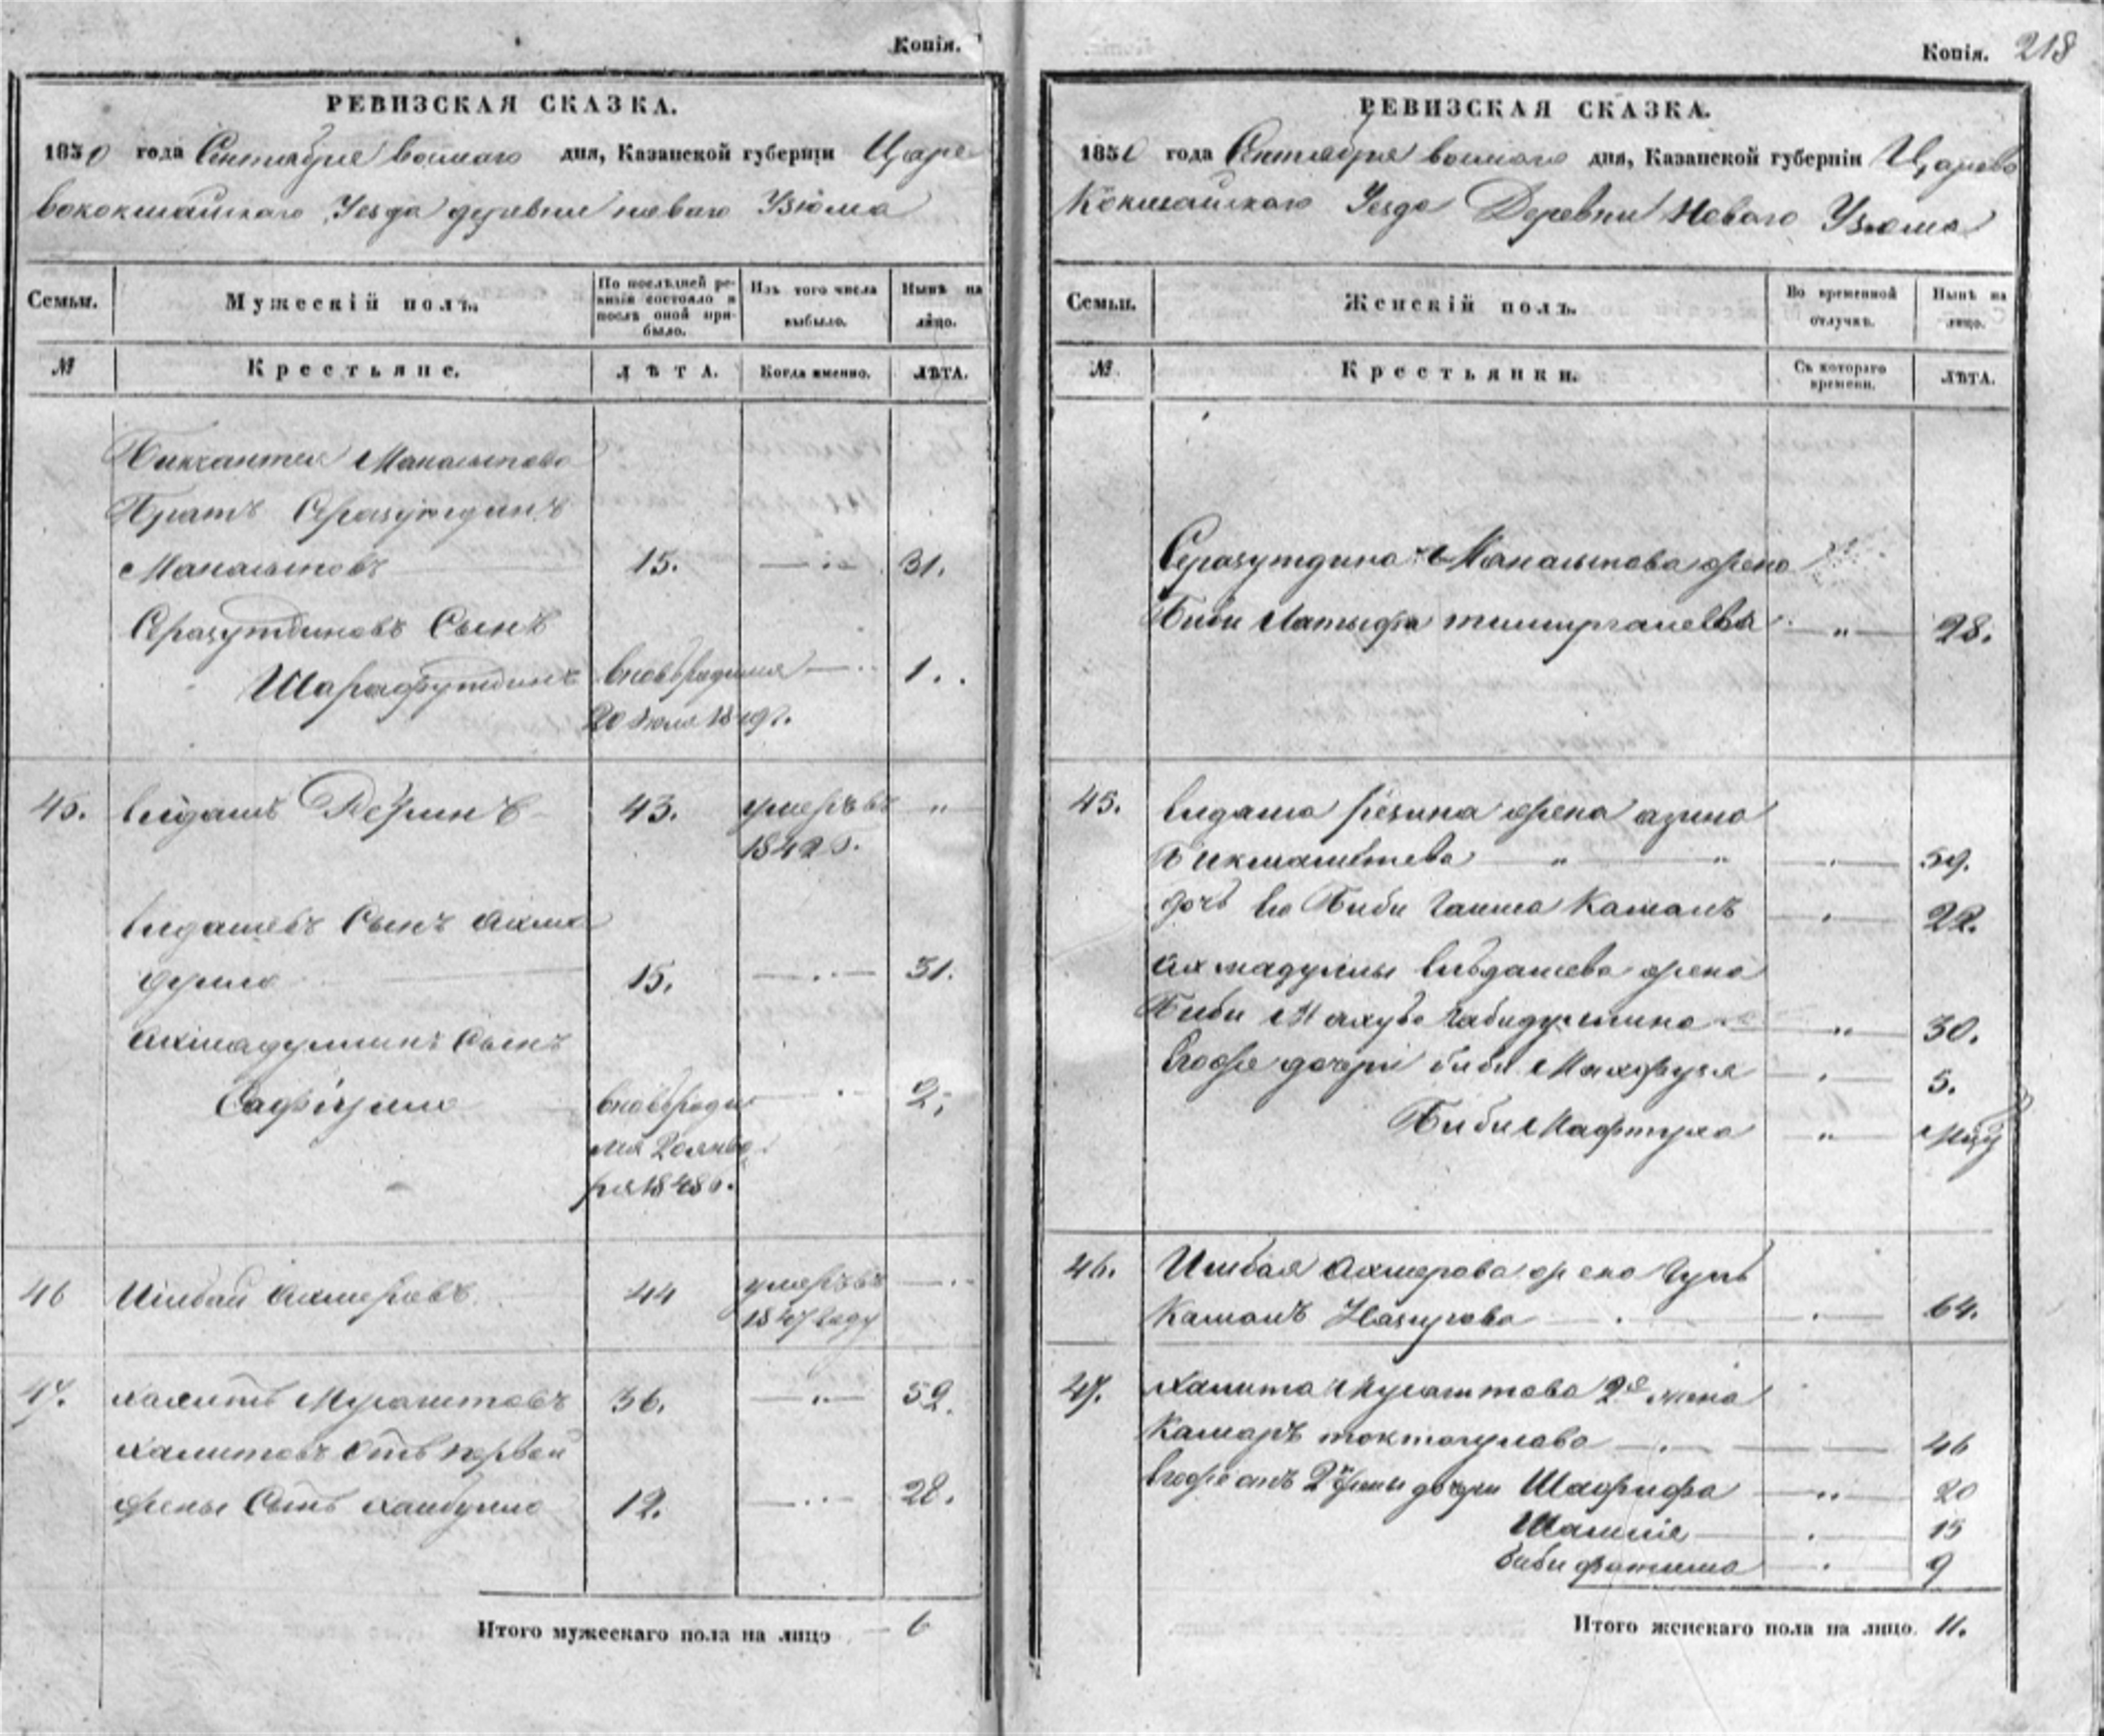 Копія.
РЕВИЗСКАЯ СКАЗКА.
1850 года Сентября восмаго дня, Казанской губерніи Царе
вококшайскаго Уезда деревни новаго Узюма
Семьи.
Мужескій полъ.
По послѣдней ре-
визіи состояло и
послѣ оной при-
было.
Изъ того числа
выбыло.
Нынѣ на
лицо.
№
Крестьяне.
ЛѢТА.
Когда именно.
ЛѢТА.
Манашитова
Братъ Серазутдинъ
Манашитовъ 15. — " — 31.
Серазутдиновъ Сынъ
Шарафутдинъ вновьродился — " 1.
20 Июля 1849г.
45. 43. умеръвъ "
1842 г.
Сынъ Ахма
дулла 15. — " — 31.
Ахмадуллинъ Сынъ
Сафіулла вновьроди — " 2.
лся 20 янва
ря 1848 г.
46 Ишбай Ахмеровъ 44 умеръвъ — "
1847 году
47. Халитъ Муратовъ 36. — " — 52.
Халитовъ Отъ первой
жены Сынъ Хайбулла 12. — " — 28.
Итого мужескаго пола на лицо 6
Копія. 218
РЕВИЗСКАЯ СКАЗКА.
1850 года Сентября восмаго дня, Казанской губерніи Царево
Кокшайскаго Уезда Деревни Новаго Узюма
Семьи.
Женскій полъ.
Во временной
отлучкѣ.
Нынѣ на
лицо.
№
Крестьянки.
Съ котораго
времени.
ЛѢТА.
Серазутдина Манашитова жена
Биби Латыфа — " — 28.
45. жена
Бикташева " " — " — 59.
дочь Ево Биби Гайша Камалъ — " — 22.
Ахмадуллы жена
Биби Махуба Габидуллина — " — 30.
Евоже дочери биби Махфузя — " — 5.
Биби Мафтуха — " —
46. Ишбая Ахмерова жена Гуль
Камалъ Назирова — " — 64.
47. Халита Муратова 2я жена
Камаръ токтагулова — " — 46
Евоже отъ 2й жены дочери Шафифа — " — 20
— " — 15
биби фатима — " — 9
Итого женскаго пола на лицо. 11.